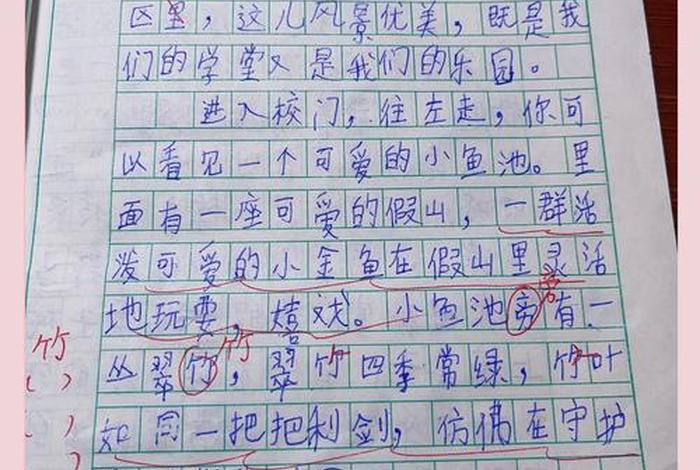 区里，这儿风景优美，既是我
们的学堂又是我们的乐园。
进入校门，往左走，你可
以看见一个可爱的小鱼池。里
面有一座可爱的假山，一群活
泼可爱的小金鱼在假山里灵活
旁
地玩耍，嬉戏。小鱼池旁有一
竹 竹
丛翠竹，翠竹四季常绿，竹叶
如同一把把利剑，仿佛在守护